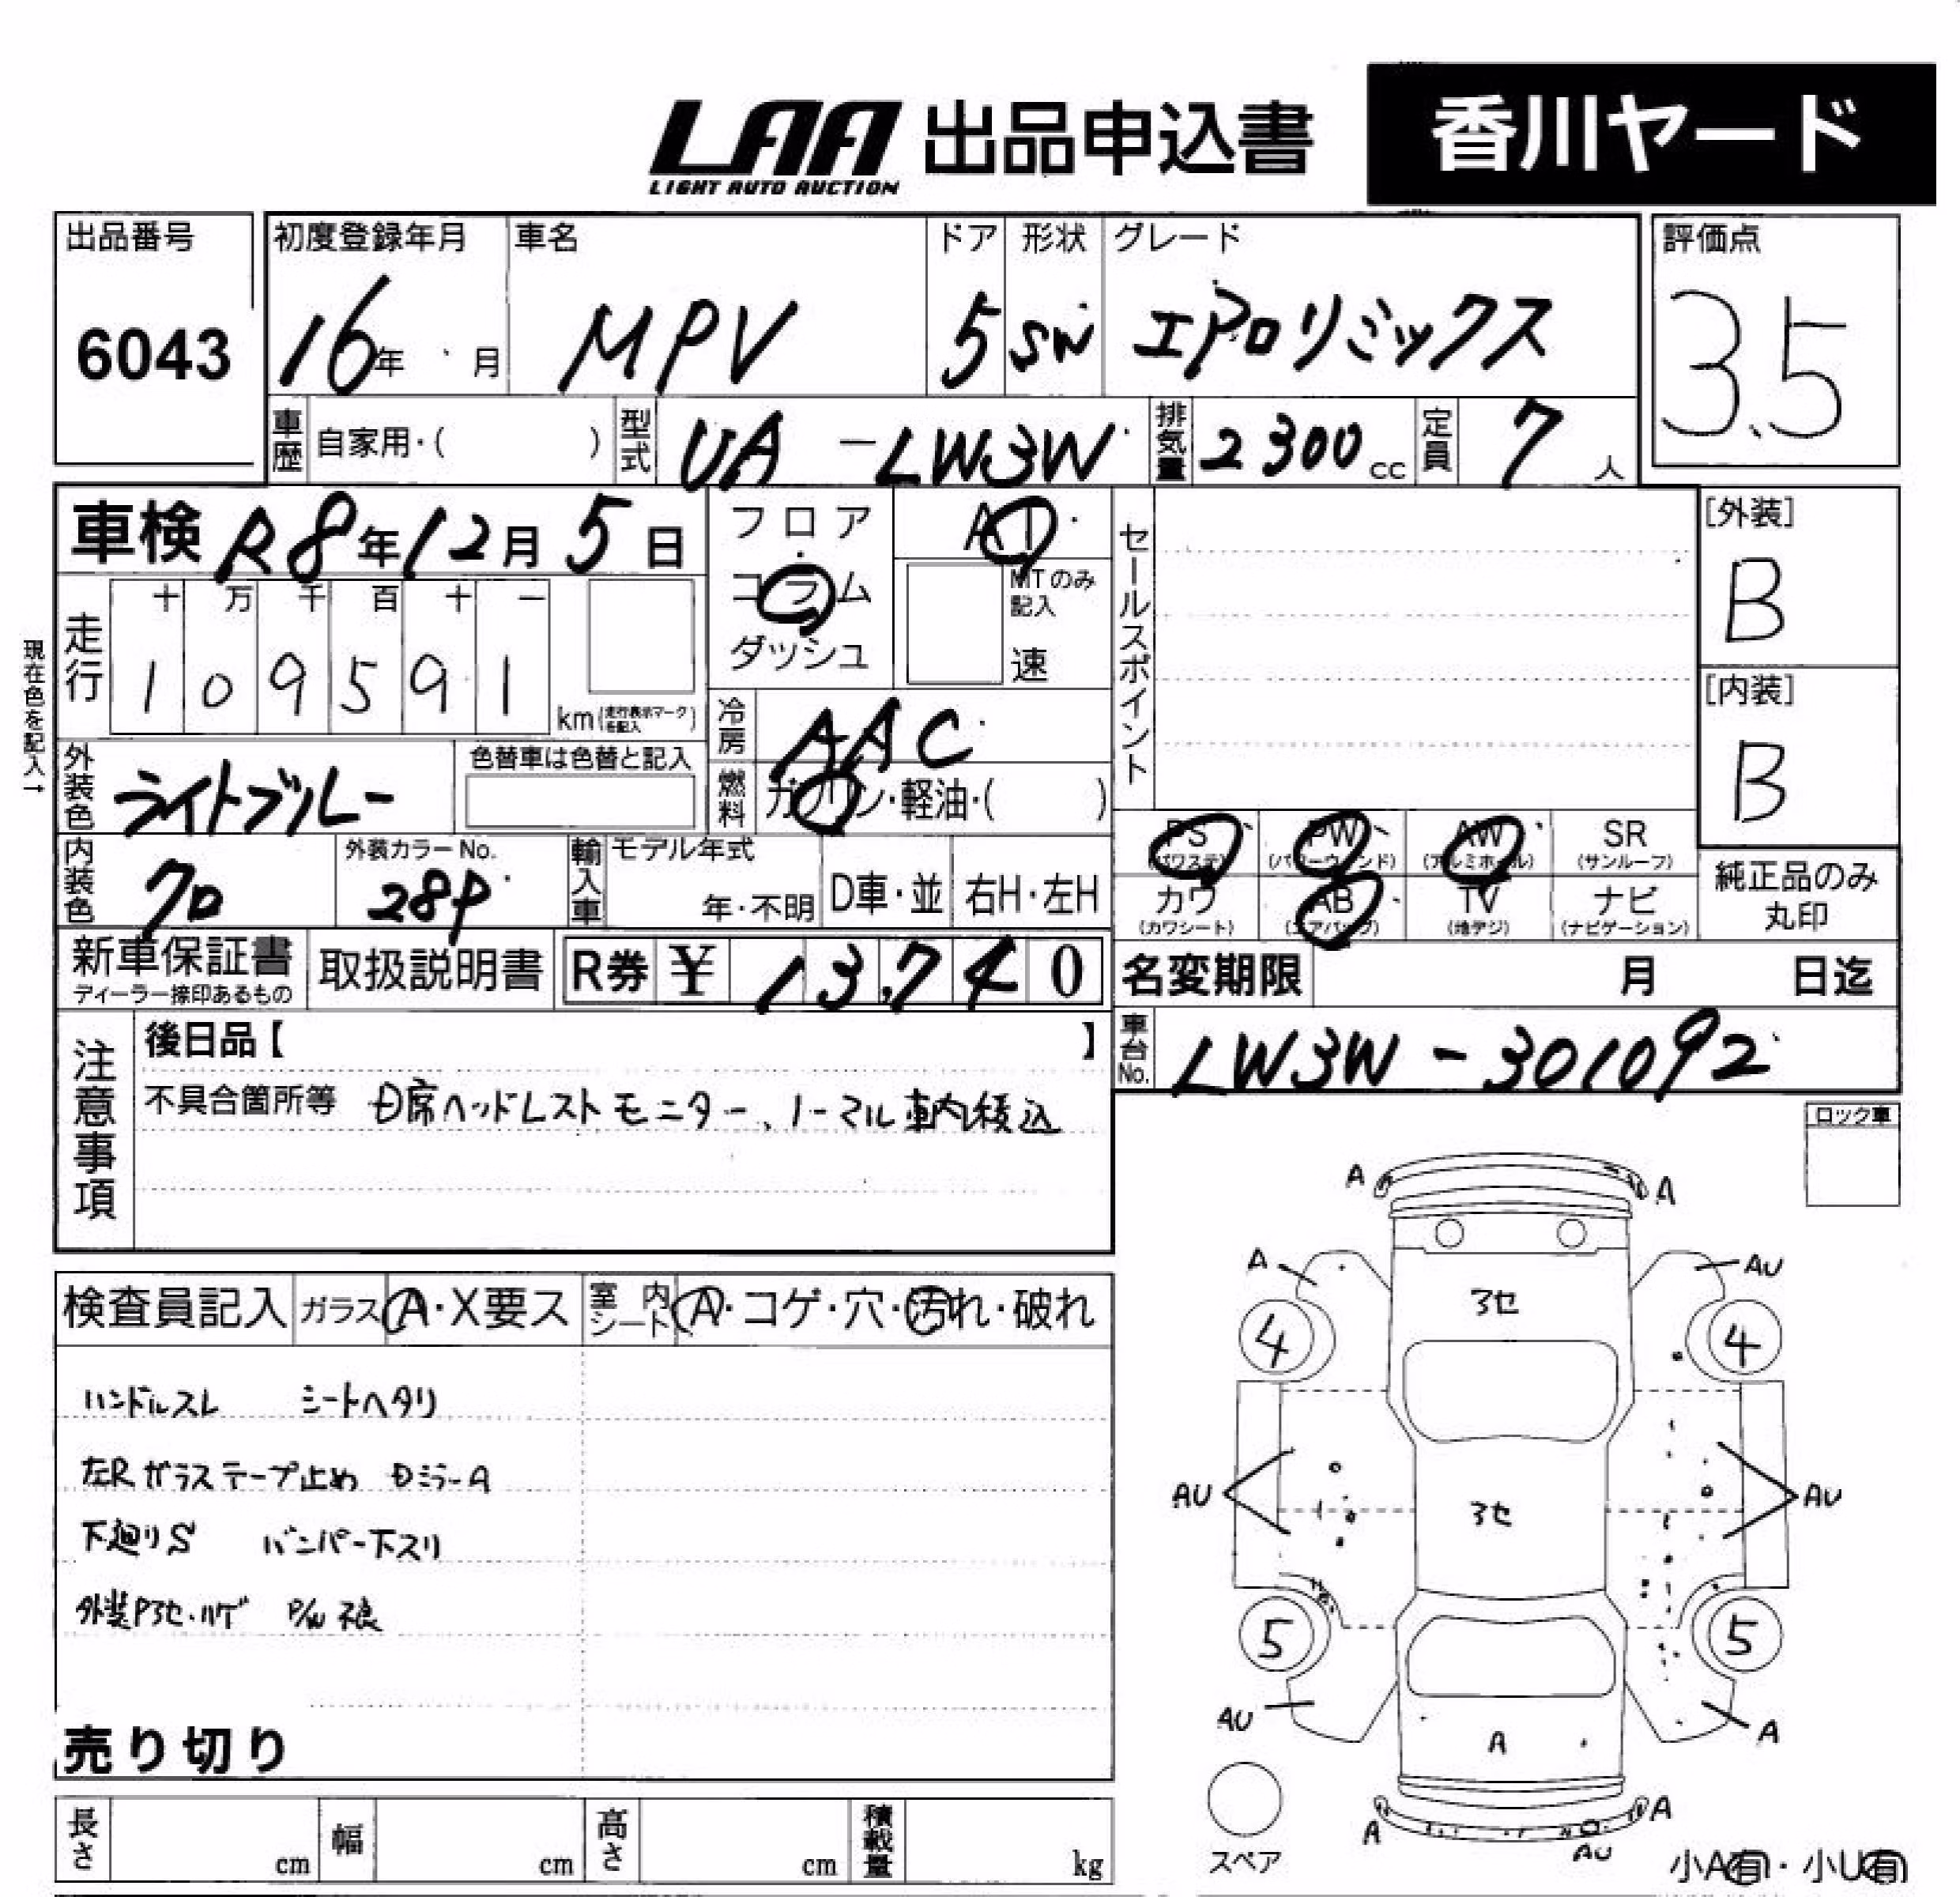 LAA 出品申込書 香川ヤード
LIGHT AUTO AUCTION
出品番号 初度登録年月 車名 ドア 形状 グレード 評価点
6043 16年 月 MPV 5 SW エアロリミックス 3.5
車歴 自家用・( ) 型式 UA-LW3W 排気量 2300cc 定員 7人
車検 R8年12月5日
フロア AT
コラム MTのみ記入
ダッシュ 速
セールスポイント
[外装]
B
[内装]
B
現在色を記入→
走行 十 万 千 百 十 一
1 0 9 5 9 1 km(走行表示マークを記入)
冷房 AAC
外装色 ライトブルー 色替車は色替と記入
燃料 ガソリン・軽油・( )
内装色 クロ 外装カラーNo. 28P
輸入車 モデル年式 年・不明 D車・並 右H・左H
PS (パワステ) PW (パワーウィンド) AW (アルミホイール) SR (サンルーフ)
カワ (カワシート) AB (エアバッグ) TV (地デジ) ナビ (ナビゲーション)
純正品のみ
丸印
新車保証書 取扱説明書 R券 ¥ 13,740
ディーラー捺印あるもの
名変期限 月 日迄
車台No. LW3W-301092
注意事項
後日品【 】
不具合箇所等 D席ヘッドレストモニター、ノーマル車内積込
ロック車
検査員記入 ガラス A・X要ス 室内シート A・コゲ・穴・汚れ・破れ
ハンドルスレ シートヘタリ
左Rガラステープ止め DミラーA
下廻りS バンパー下スリ
外装Pヨセ・ハゲ P/W不良
売り切り
長さ cm 幅 cm 高さ cm 積載量 kg
A A
A AU
ヨセ
4 4
AU ヨセ AU
5 5
AU A A
A A
AU
スペア
小A有・小U有